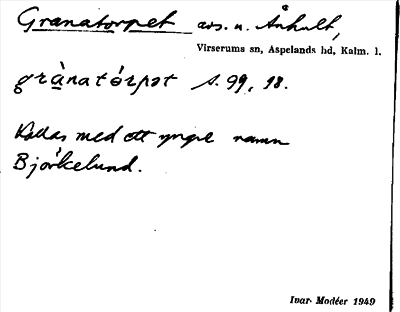 Granatorpet avs. u. Ånhult,
Virserums sn, Aspelands hd, Kalm. l.
grànatórpət s. 99, 98.
Kallas med ett yngre namn
Björkelund.
Ivar Modéer 1949